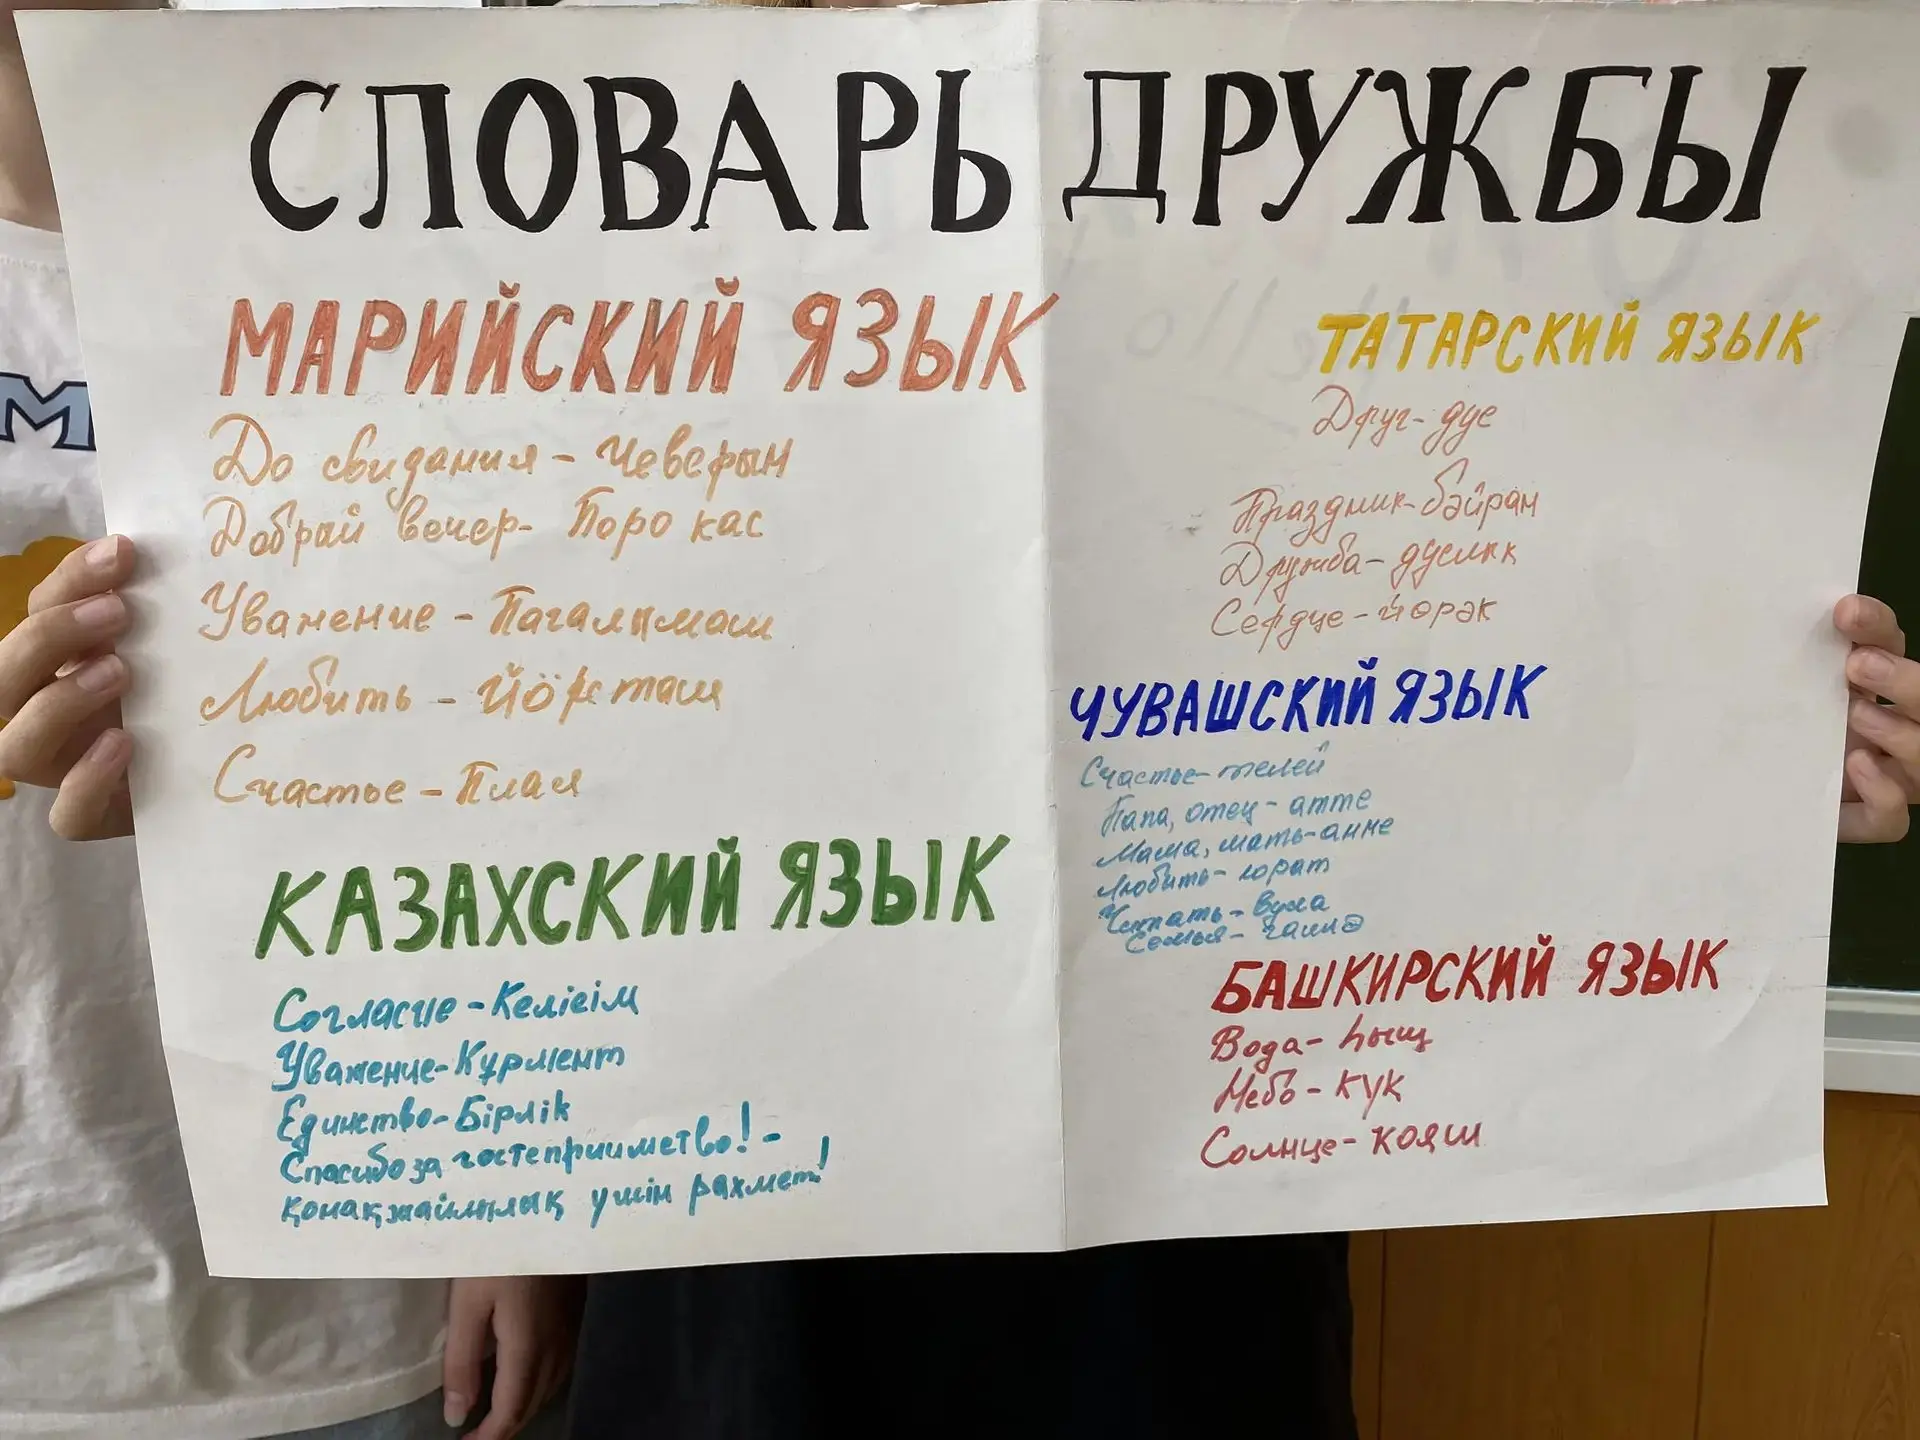 СЛОВАРЬ ДРУЖБЫ
МАРИЙСКИЙ ЯЗЫК
До свидания - Чеверын
Добрый вечер - Поро кас
Уважение - Пагалымаш
Любить - Йöрсташ
Счастье - Пиал
КАЗАХСКИЙ ЯЗЫК
Согласие - Келісім
Уважение - Құрмент
Единство - Бірлік
Спасибо за гостеприимство! -
қонақжайлылық үшін рахмет!
ТАТАРСКИЙ ЯЗЫК
Друг - дус
Праздник - бәйрам
Дружба - дуслык
Сердце - йөрәк
ЧУВАШСКИЙ ЯЗЫК
Счастье - телей
Папа, отец - атте
Мама, мать - анне
Любить - юрат
Читать - вула
Семья -
БАШКИРСКИЙ ЯЗЫК
Вода - һыщ
Небо - күк
Солнце - кояш
M